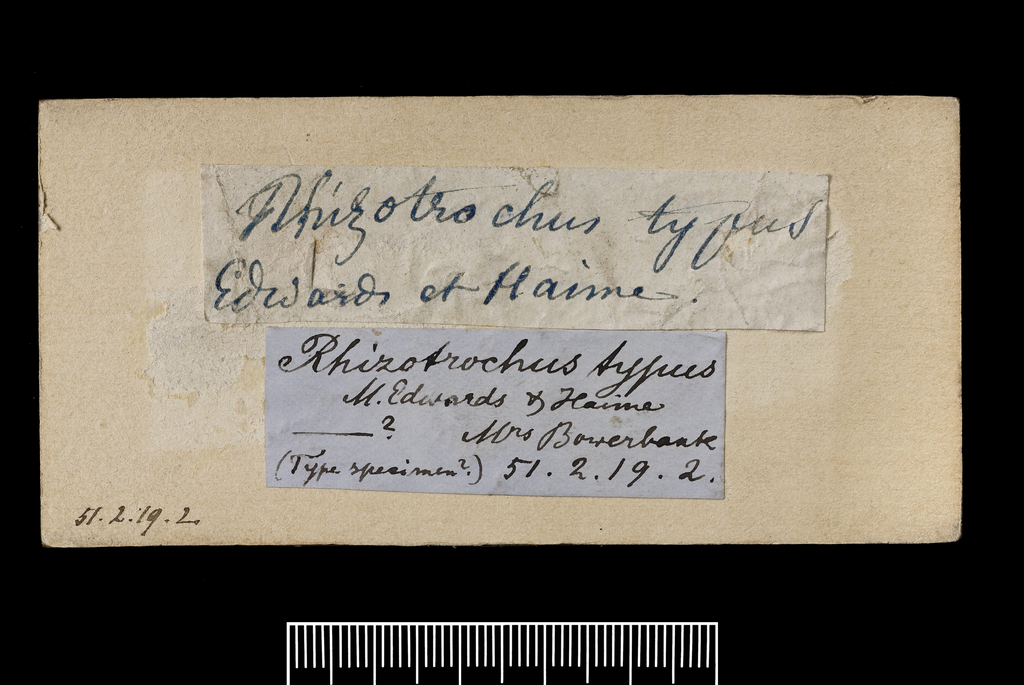 Rhizotrochus typus
Edwards et Haime.
Rhizotrochus typus
M. Edwards & Haime
——? Mrs Bowerbank
(Type specimen?.) 51. 2. 19. 2.
51. 2. 19. 2